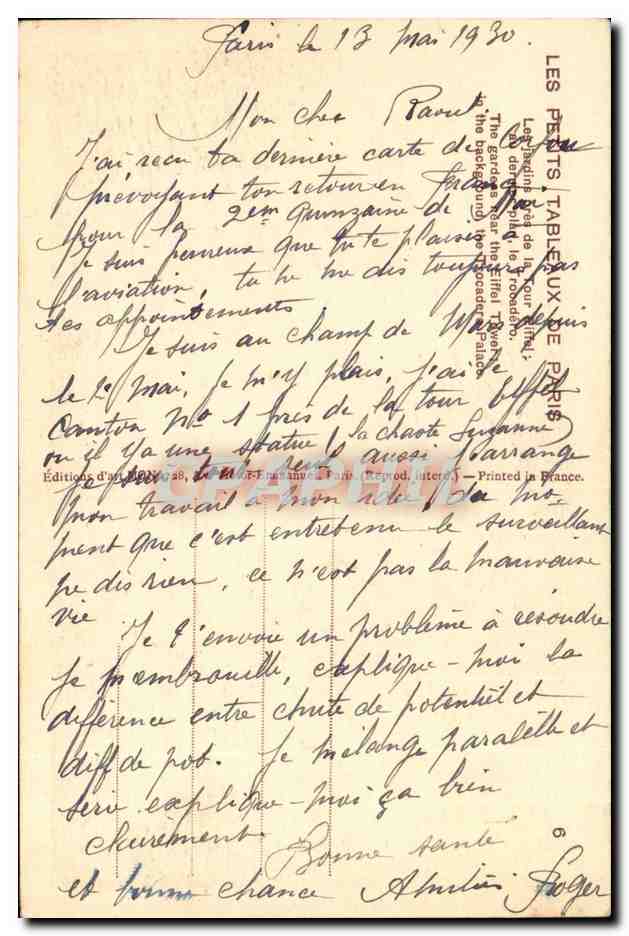 Paris le 13 mai 1930.
Mon cher Raoul.
J'ai reçu ta dernière carte de
prévoyant ton retour en France
pour la 2em quinzaine de Mai
Je suis heureux que tu te plaises à
l'aviation, tu ne me dis toujours pas
tes appointements
Je suis au champ de Mars depuis
le 1e mai, je m'y plais, j'ai le
canton No 1 près de la tour Effel
ou il y a une statue (la chaste Suzanne)
je suis tout seul aussi j'arrange
mon travail à mon idée, du mo-
ment que c'est entretenu le surveillant
ne dis rien, ce n'est pas la mauvaise
vie
Je t'envoie un problème à résoudre
Je m'embrouille, explique-moi la
différence entre chute de potentiel et
diff de pot. Je mélange paralelle et
serie explique-moi ça bien
clairement.
Bonne santé
et bonne chance Amitiés Roger
LES PETITS TABLEAUX DE PARIS
Les jardins près de la Tour Eiffel;
au dernier plan, le Trocadéro.
The gardens near the Eiffel Tower;
in the background, the Trocadero Palace
Éditions d'art 28, Victor-Emmanuel, Paris. (Reprod. interd.) — Printed in France.
6